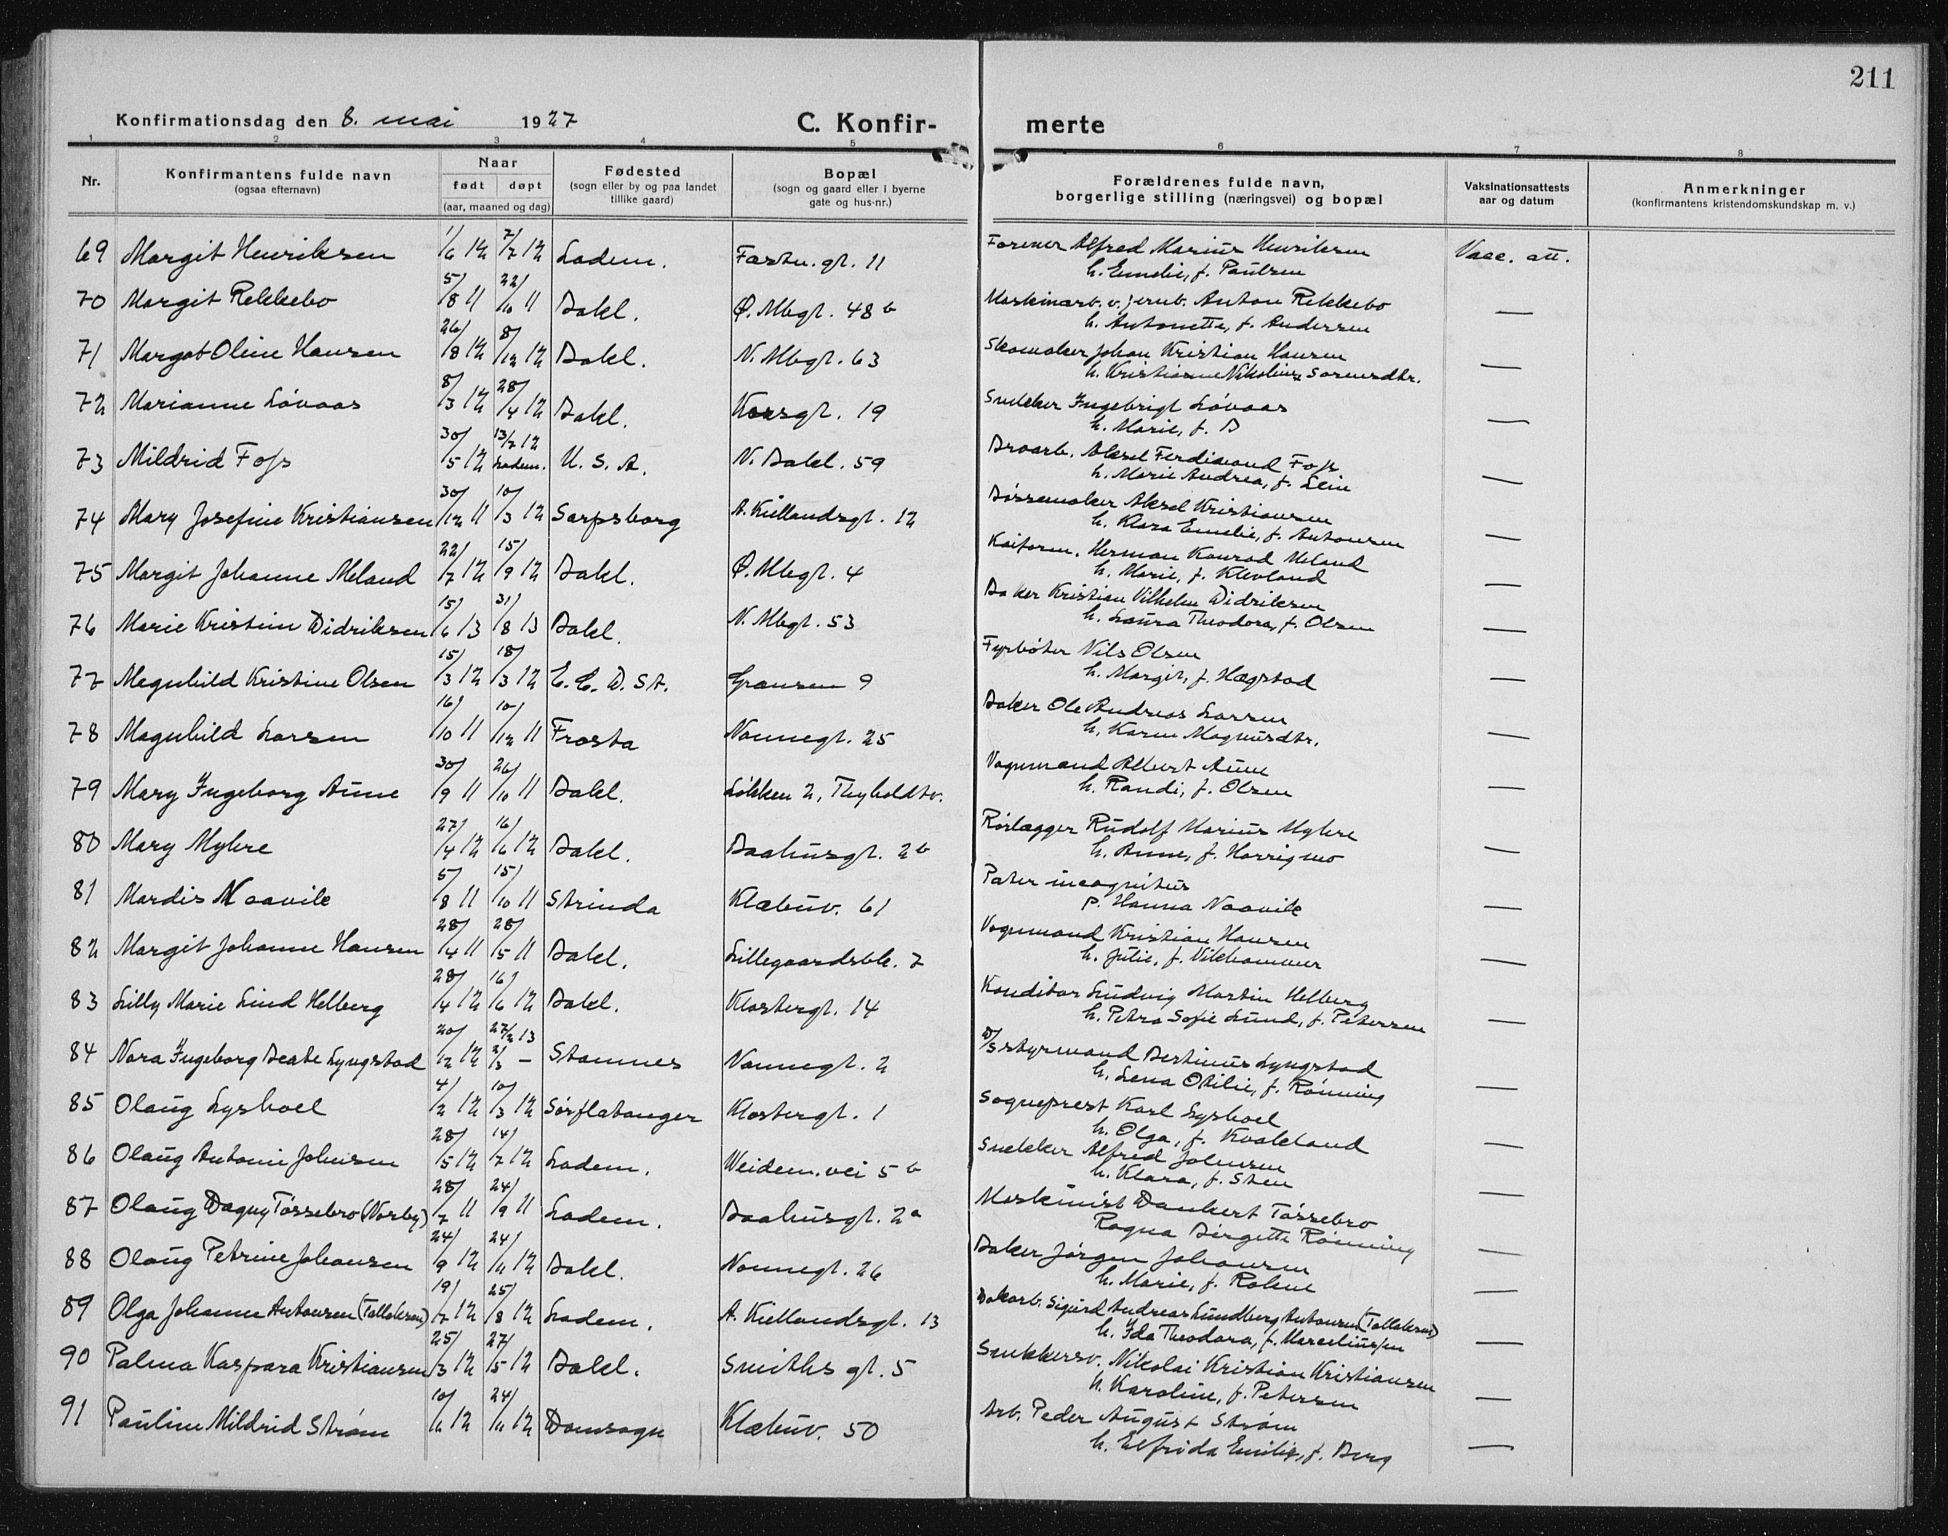 211
Konfirmationsdag den 8. mai 1927
C. Konfir- merte
1 2 3 4 5 6 7 8
Nr.
Konfirmantens fulde navn
(ogsaa efternavn)
Naar
født døpt
(aar, maaned og dag)
Fødested
(sogn eller by og paa landet
tillike gaard)
Bopæl
(sogn og gaard eller i byerne
gate og hus-nr.)
Forældrenes fulde navn,
borgerlige stilling (næringsvei) og bopæl
Vaksinationsattests
aar og datum
Anmerkninger
(konfirmantens kristendomskundskap m. v.)
69 Margit Henriksen 1/6 12 7/7 12 Ladem. Fæstn. gt. 11 Farener Alfred Marius Henriksen Vacc. att.
h. Emelie, f. Paulsen
70 Margit Rekkebo 5/8 11 22/10 11 Bakl. Ø. Mbgt. 48 b Maskinarb. v. jernb. Anton Rekkebo —
h. Antonette, f. Andersen
71 Margot Oline Hansen 26/8 12 8/12 12 Bakl. N. Mbgt. 63 Skomaker Johan Kristian Hansen —
h. Kristianne Nikoline Sorensdtr.
72 Marianne Løvaas 8/3 12 28/4 12 Bakl. Korsgt. 19 Snekker Ingebrigt Løvaas —
h. Marie, f. B
73 Mildrid Foss 30/5 12 13/7 12 Ladem. U. S. A. N. Bakl. 59 Broarb. Aksel Ferdinand Foss —
h. Marie Andrea, f. Lein
74 Mary Josefine Kristiansen 30/12 11 10/3 12 Sarpsborg A. Kiellandsgt. 12 Bøssemaker Aksel Kristiansen —
h. Klara Emelie, f. Antonsen
75 Margit Johanne Meland 22/7 12 15/9 12 Bakl. Ø. Mbgt. 4 Kaiform. Herman Konrad Meland —
h. Marie, f. Klevland
76 Marie Kristine Didriksen 15/6 13 31/8 13 Bakl. N. Mbgt. 53 Baker Kristian Vilhelm Didriksen —
h. Laura Theodora, f. Olsen
77 Magnhild Kristine Olsen 15/3 12 18/3 12 E. C. D. S. A. Grænsen 9 Fyrbøter Nils Olsen —
h. Margit, f. Hægstad
78 Magnhild Larsen 16/10 11 10/12 11 Frosta Nonnegt. 25 Baker Ole Andreas Larsen —
h. Karen Magnusdtr.
79 Mary Ingeborg Aune 30/9 11 26/10 11 Bakl. Løkken 2, Thyholdtv. Vognmand Albert Aune —
h. Randi, f. Olsen
80 Mary Myhre 27/4 12 16/6 12 Bakl. Baahusgt. 2 b Rørlægger Rudolf Marius Myhre —
h. Anne, f. Horrigmo
81 Mardis Naavik 5/8 11 15/10 11 Strinda Klæbuv. 61 Pater incognitus —
p. Hanna Naavik
82 Margit Johanne Hansen 28/4 11 28/5 11 Bakl. Lillegaardsbk. 7 Vognmand Kristian Hansen —
h. Julie, f. Vikhammer
83 Lilly Marie Lind Helberg 28/4 12 16/6 12 Bakl. Klostergt. 14 Konditor Ludvig Martin Helberg —
h. Petra Sofie Lund, f. Petersen
84 Nora Ingeborg Beate Lyngstad 20/12 12 27/2 13 2/3 – Stamnes Nonnegt. 2 D/S styrmand Bertinus Lyngstad —
h. Lena Otilie, f. Rønning
85 Olaug Lyshoel 4/2 12 10/3 12 Sørflatanger Klostergt. 1 Sogneprest Karl Lyshoel —
h. Olga, f. Kvaleland
86 Olaug Antonie Johnsen 28/5 12 14/7 12 Ladem. Weidem. vei 5 b Snekker Alfred Johnsen —
h. Klara, f. Sten
87 Olaug Dagny Tøssebro (Norby) 28/7 11 24/9 11 Ladem. Baahusgt. 2 a Maskinist Dankert Tøssebro —
Ragna Birgette Rønning
88 Olaug Petrine Johansen 24/9 12 24/11 12 Bakl. Nonnegt. 26 Baker Jørgen Johansen —
h. Marie, f. Rokne
89 Olga Johanne Antonsen (Tallaksen) 19/7 12 25/8 12 Ladem. A. Kiellandsgt. 13 Bakarb. Sigurd Andreas Lundberg Antonsen (Tallaksen) —
h. Ida Theodora, f. Marcelinssen
90 Palma Kaspara Kristiansen 25/3 12 27/5 12 Bakl. Smiths gt. 5 Snekkersv. Nikolai Kristian Kristiansen —
h. Karoline, f. Petersen
91 Pauline Mildrid Strøm 10/6 12 24/11 12 Domsogn Klæbuv. 50 Arb. Peder August Strøm —
h. Elfrida Emilie, f. Berg